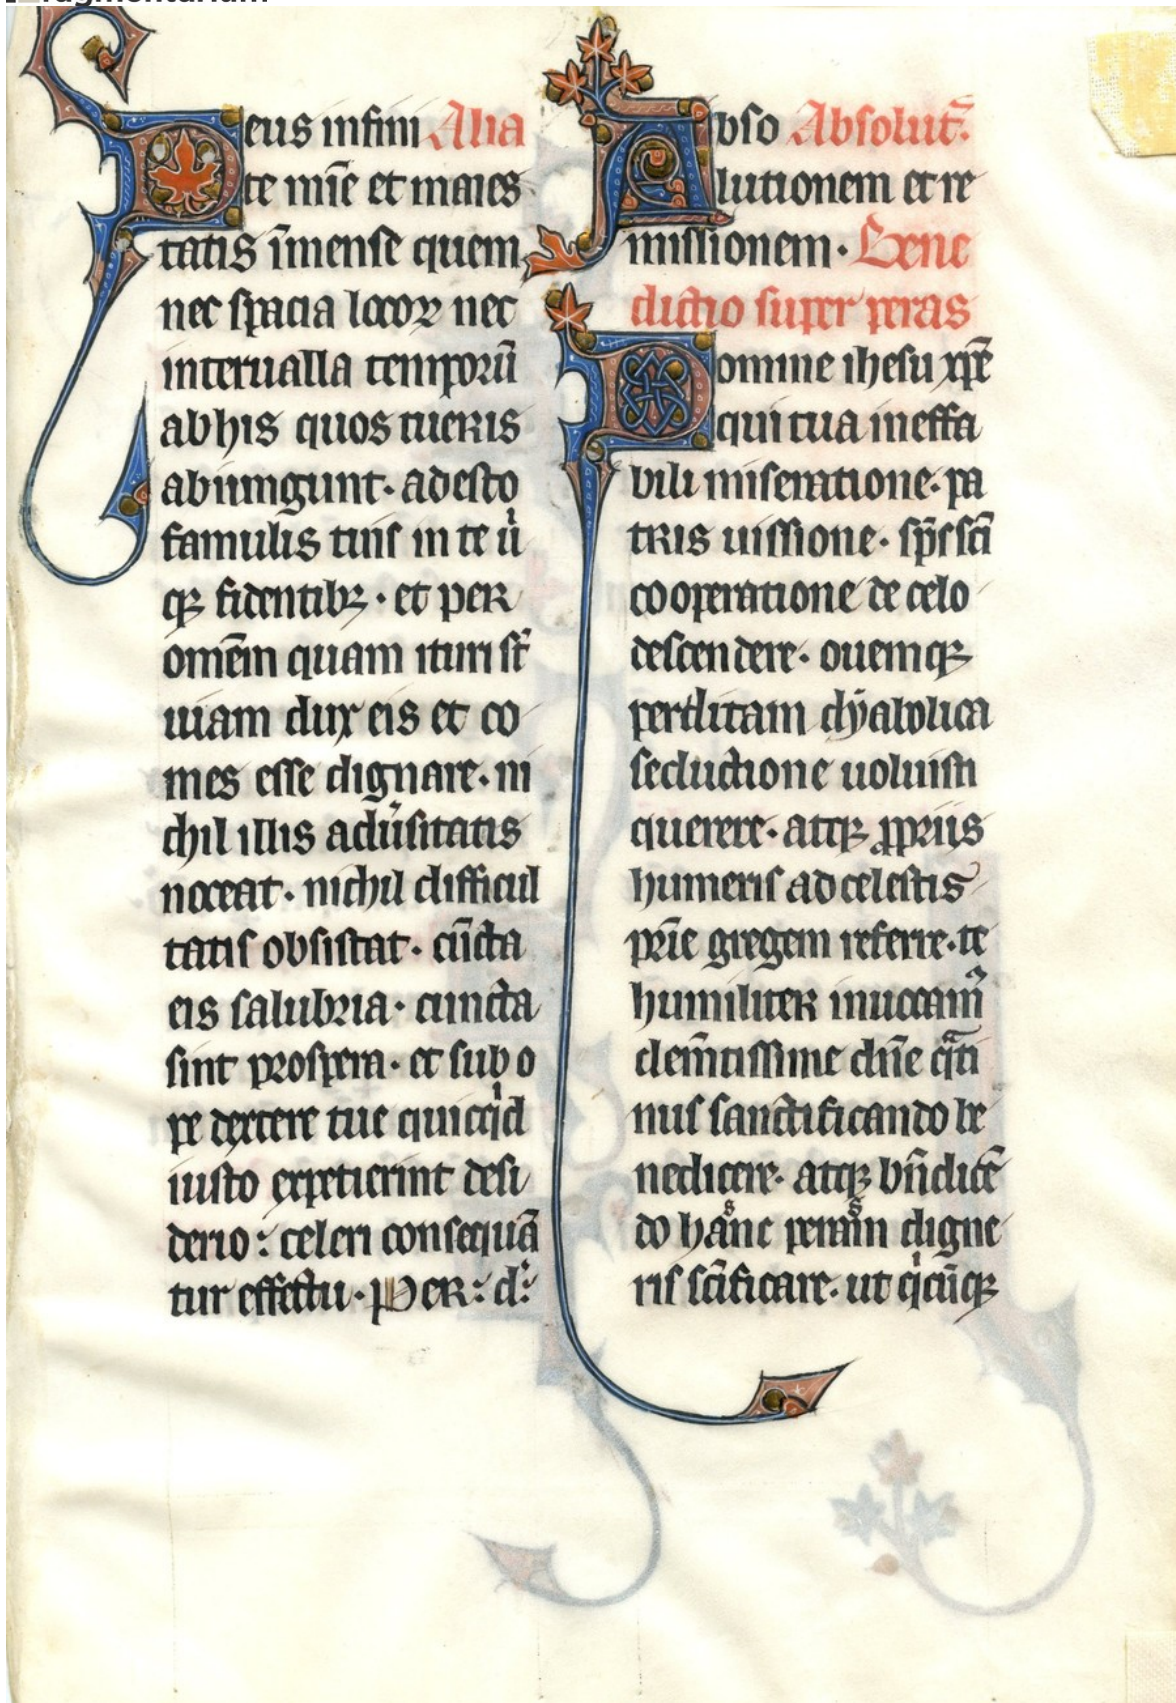 Fragmentarium
Deus infini Alia
te mīe et maies
tatis īmense quem
nec spacia locoꝝ nec
interualla temporū
abhis quos tueris
abiungunt· adesto
famulis tuis in te ubi
qꝫ fidentibꝫ· et per
omēm quam ituri st̄
uiam dux eis et co
mes esse dignare· ni
chil illis adu̓sitatis
noceat· nichil difficul
tatis obsistat· cūcta
eis salubria· cuncta
sint prospera· et sub o
pe dextere tue quicqͥd
iusto expetierint desi
derio: celeri consequā
tur effectu· Per: d:
Abso Absolut̄.
lutionem et re
missionem· Bene
dictio super peras
Domine ihesu xp̄e
qui tua ineffa
bili miseratione· pa
tris uissione· sp̄s sc̄i
cooperatione de celo
descendere· ouemqꝫ
perditam dyabolica
seductione uoluisti
querere· atqꝫ ꝓpriis
humeris ad celestis
pr̄ie gregem referre· te
humiliter inuocam᷒
clem̄tissime dn̄e qͣti
nus sanctificando be
nedicere· atqꝫ bn̄dicē
do haˢnc peramˢ digne
ris sc̄ificare· ut qͥcūqꝫ